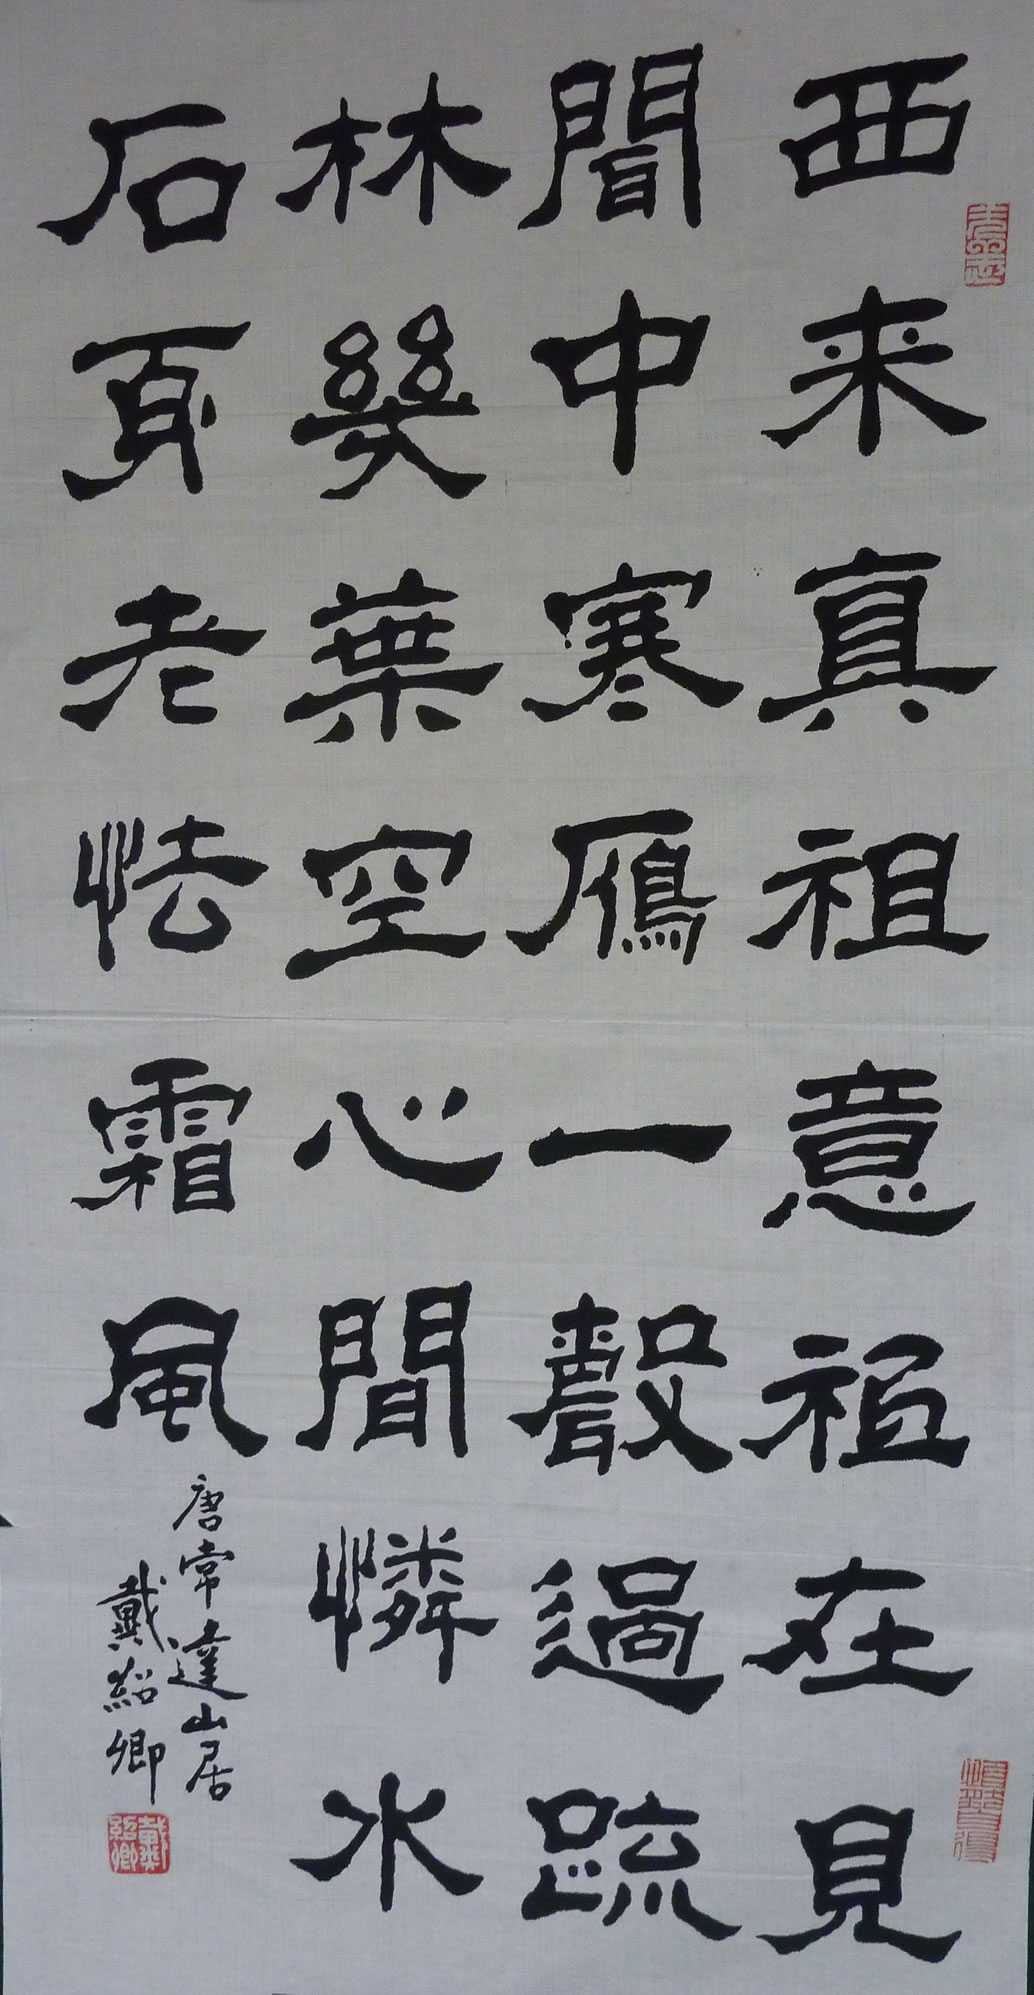 西来真祖意祗在見
聞中寒鴈一聲過疏
林幾葉空心間憐水
石身老怯霜風
唐常達山居
戴紹卿